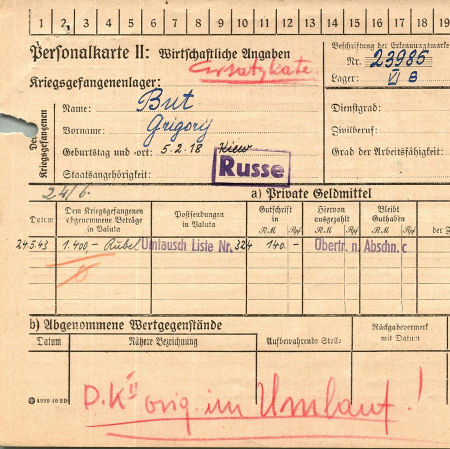 1 2 3 4 5 6 7 8 9 10 11 12 13 14 15 16 17 18 19
Personalkarte II: Wirtschaftliche Angaben
Ersatzkarte.
Kriegsgefangenenlager:
Beschriftung der Erkennungsmarke
Nr. 23985
Lager: VI B
Des Kriegsgefangenen
Name: But
Vorname: Grigorij
Geburtstag und -ort: 5.2.18 Kiew
Staatsangehörigkeit: Russe
Dienstgrad:
Zivilberuf:
Grad der Arbeitsfähigkeit:
24/6.
a) Private Geldmittel
Datum
Dem Kriegsgefangenen abgenommene Beträge in Valuta
Postsendungen in Valuta
Gutschrift in
RM Rpf
Hiervon ausgezahlt
RM Rpf
Bleibt Guthaben
RM Rpf
der
24.5.43 1.400,- Rubel Umtausch Liste Nr. 324 140.- Übertr. n. Abschn. c
b) Abgenommene Wertgegenstände
Datum
Nähere Bezeichnung
Aufbewahrende Stelle
Rückgabevermerk mit Datum
P.K II orig. im Umlauf!
4999 40 2D